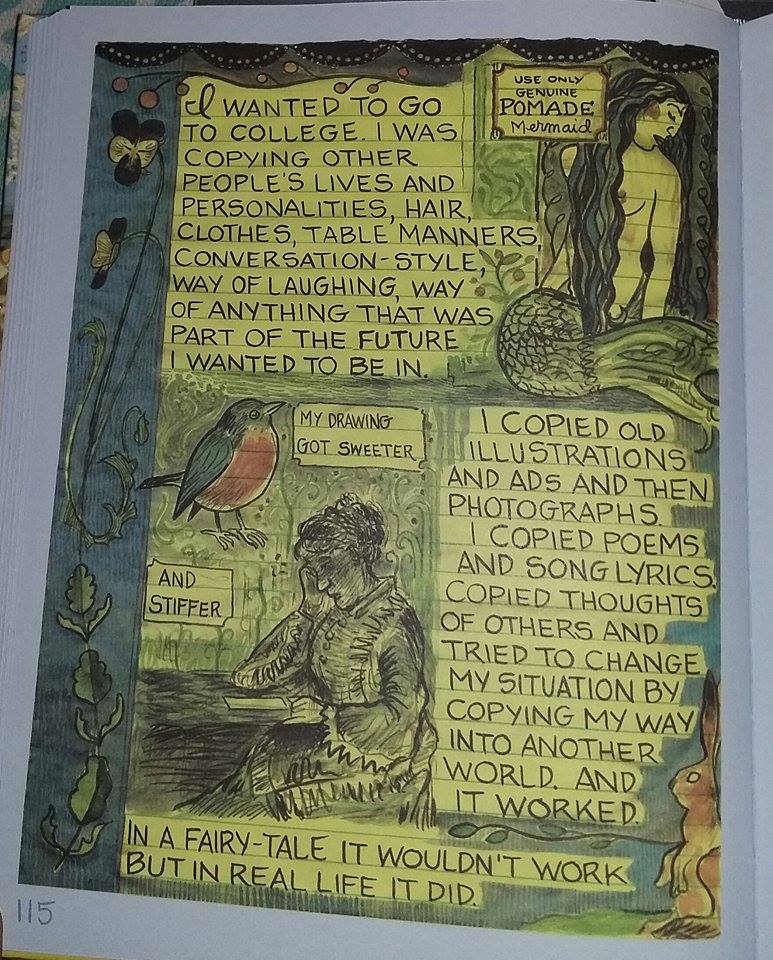 I WANTED TO GO
TO COLLEGE. I WAS
COPYING OTHER
PEOPLE'S LIVES AND
PERSONALITIES, HAIR,
CLOTHES, TABLE MANNERS,
CONVERSATION-STYLE,
WAY OF LAUGHING, WAY
OF ANYTHING THAT WAS
PART OF THE FUTURE
I WANTED TO BE IN.
USE ONLY
GENUINE
POMADE
Mermaid
MY DRAWING
GOT SWEETER
AND
STIFFER
I COPIED OLD
ILLUSTRATIONS
AND ADS AND THEN
PHOTOGRAPHS.
I COPIED POEMS
AND SONG LYRICS.
COPIED THOUGHTS
OF OTHERS AND
TRIED TO CHANGE
MY SITUATION BY
COPYING MY WAY
INTO ANOTHER
WORLD. AND
IT WORKED.
IN A FAIRY-TALE IT WOULDN'T WORK
BUT IN REAL LIFE IT DID.
115